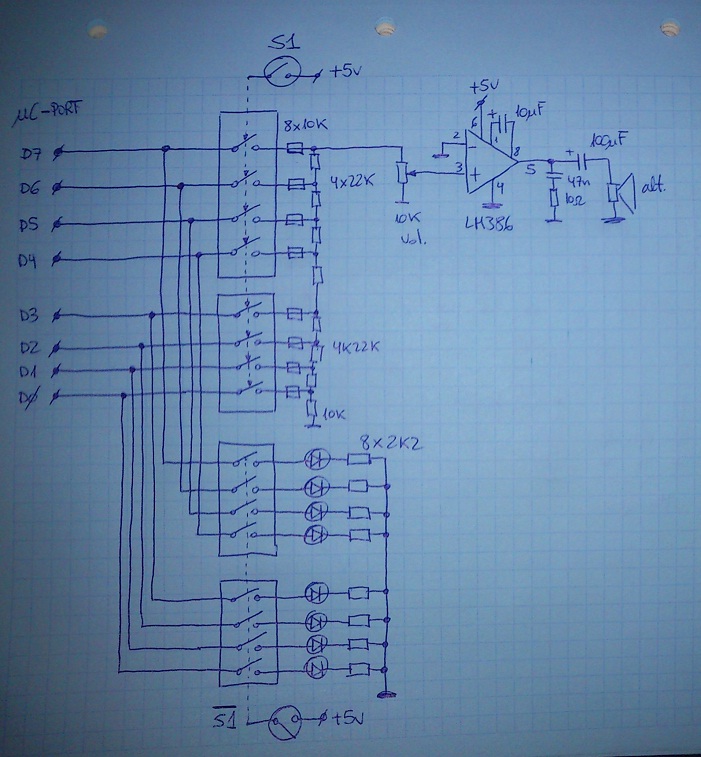 S1
+5v
+5v
µC-PORT
8x10K
10µF
+
6
1
D7
2
-
8
+
100µF
3
+
5
D6
4x22K
4
47n
10Ω
alt.
D5
10K
Vol.
LM386
D4
D3
D2
4K22K
D1
DØ
10K
8x2K2
S1
+5v